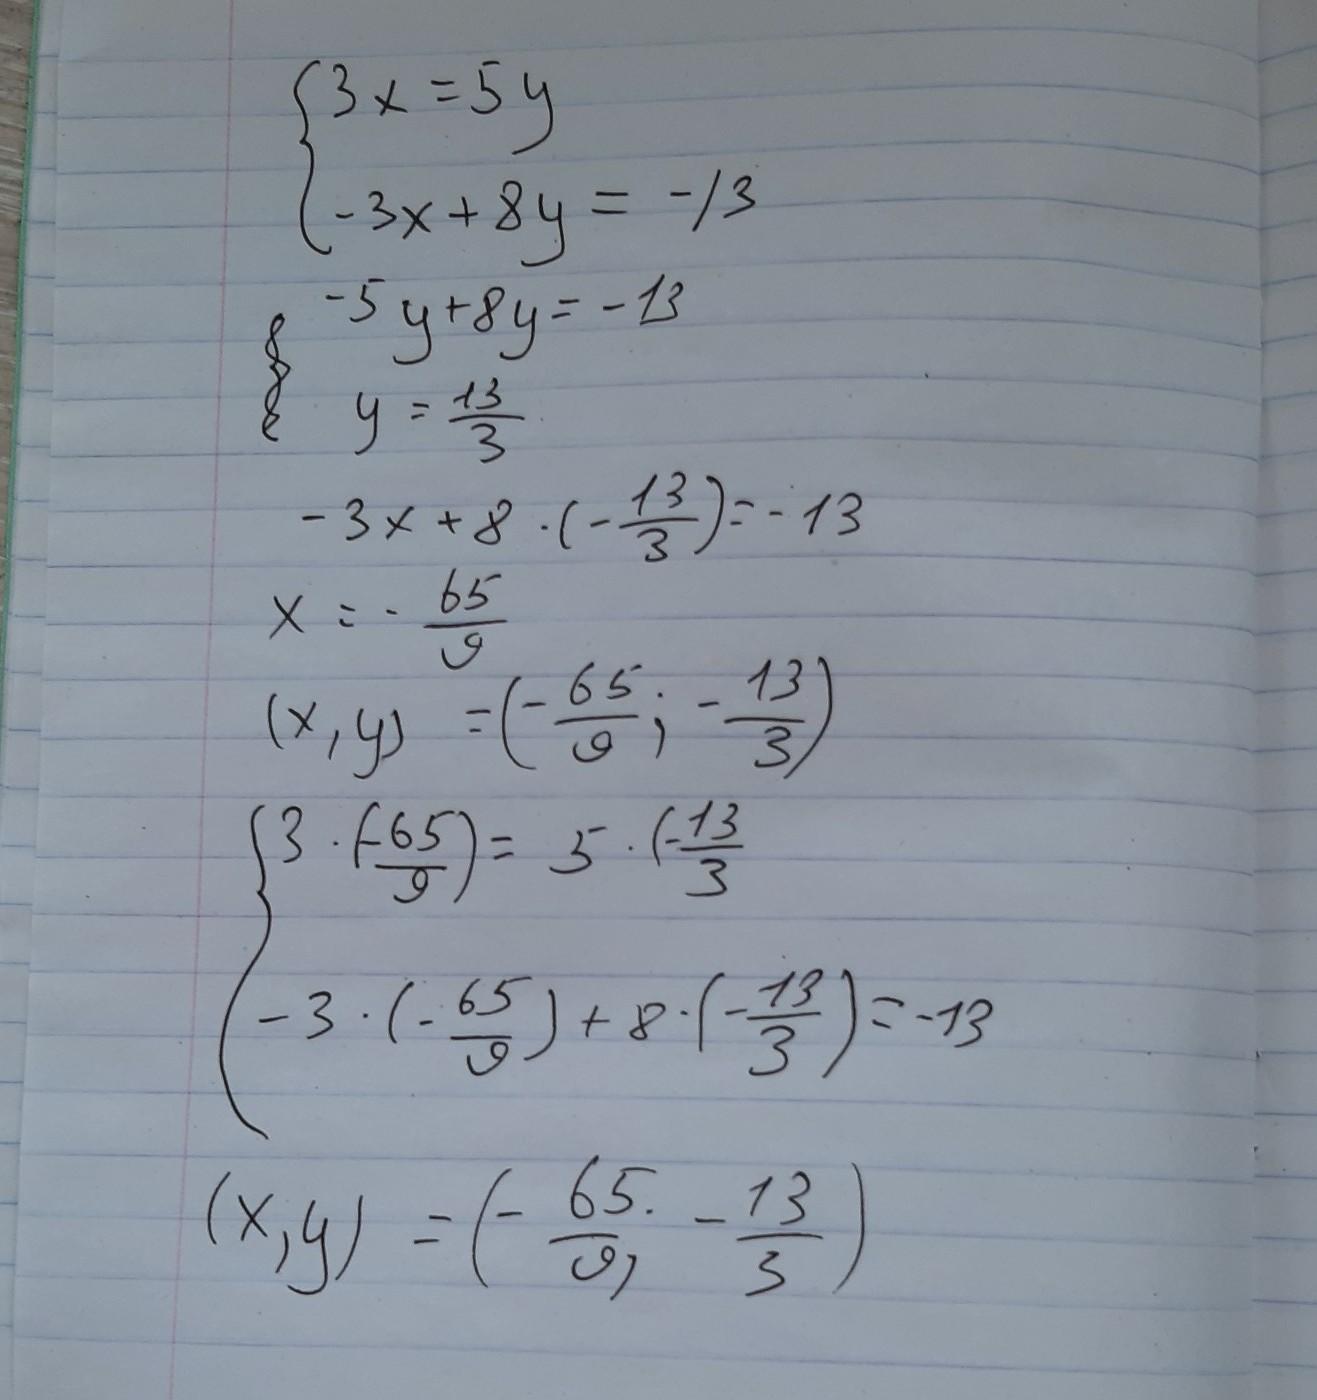 {3x = 5y
-3x + 8y = -13
{-5y + 8y = -13
y = 13/3
-3x + 8 · (-13/3) = -13
x = -65/9
(x, y) = (-65/9; -13/3)
{3 · (-65/9) = 5 · (-13/3
-3 · (-65/9) + 8 · (-13/3) = -13
(x, y) = (-65/9; -13/3)